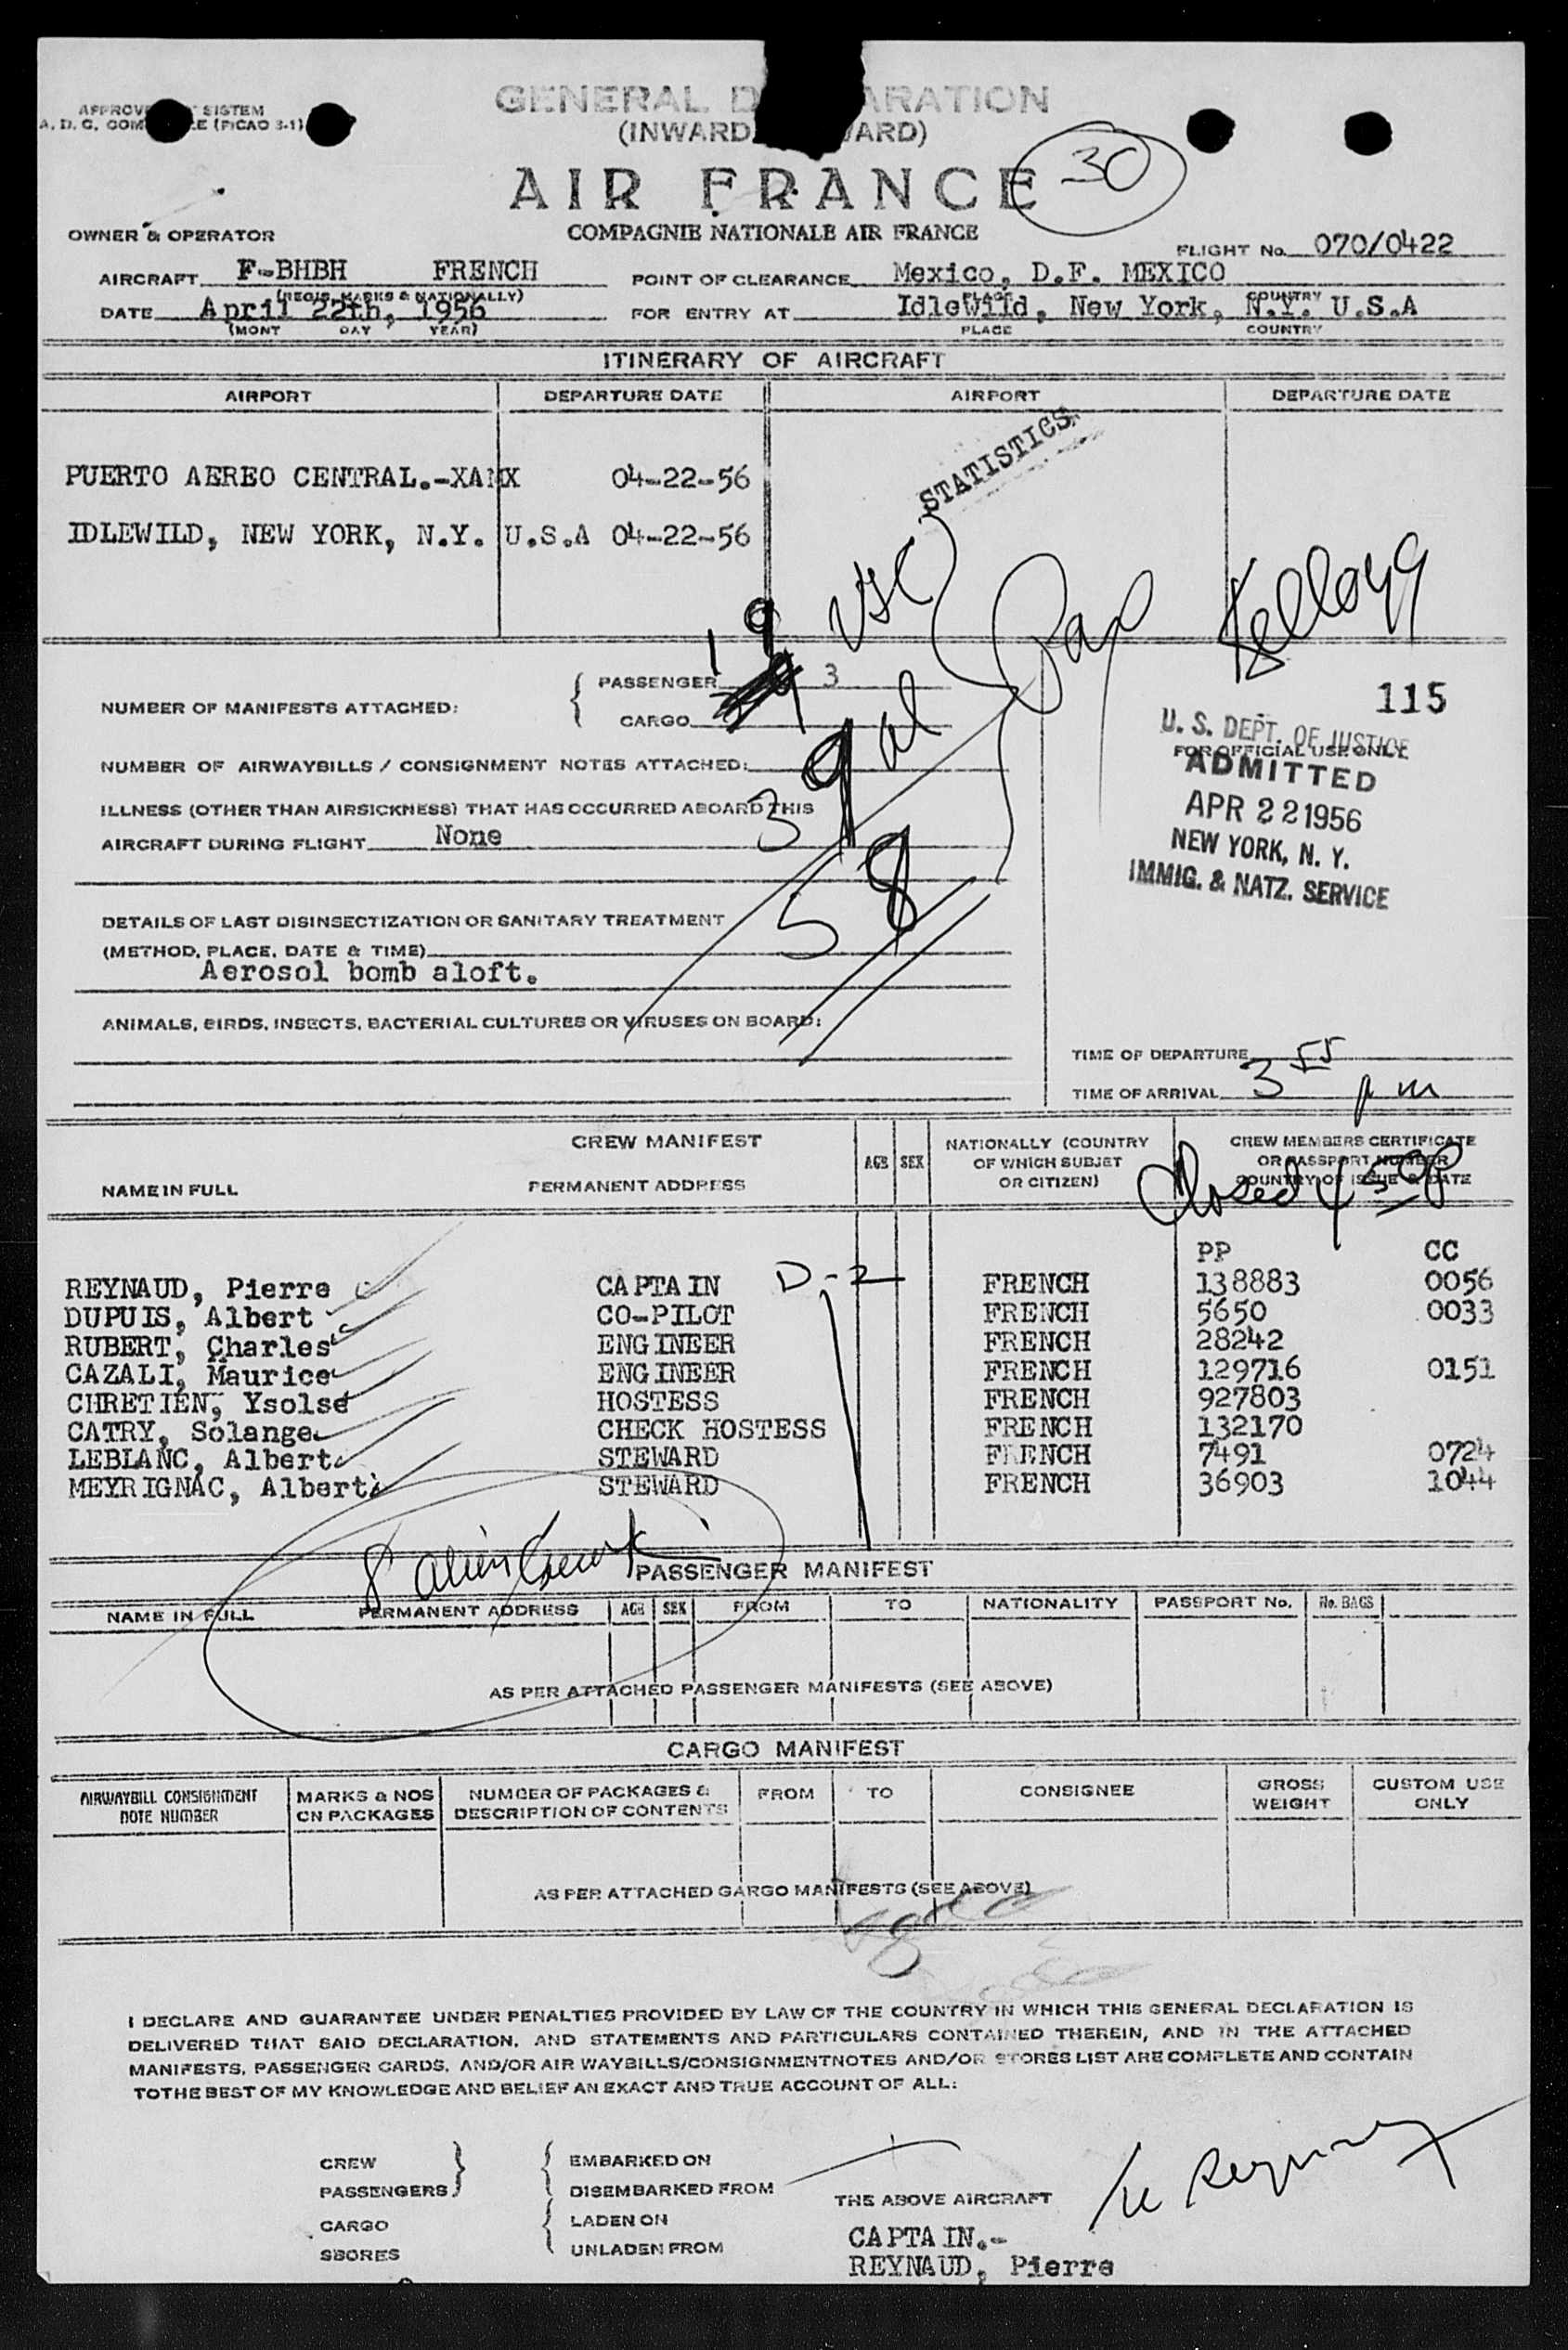 APPROV SISTEM
A. D. C. COM E (PICAO 3-1)
GENERAL D ARATION
(INWARD ARD)
30
AIR FRANCE
COMPAGNIE NATIONALE AIR FRANCE
OWNER & OPERATOR
FLIGHT No. 070/0422
AIRCRAFT F-BHBH FRENCH
POINT OF CLEARANCE Mexico, D.F. MEXICO
(REGIS. MARKS & NATIONALLY)
PLACE COUNTRY
DATE April 22th, 1956
FOR ENTRY AT Idlewild, New York, N.Y. U.S.A
(MONT DAY YEAR)
PLACE COUNTRY
ITINERARY OF AIRCRAFT
AIRPORT DEPARTURE DATE AIRPORT DEPARTURE DATE
STATISTICS
PUERTO AEREO CENTRAL.-XAMX 04-22-56
IDLEWILD, NEW YORK, N.Y. U.S.A 04-22-56
19 USC
Kelloyg
PASSENGER 3
NUMBER OF MANIFESTS ATTACHED:
CARGO
39 al
115
U. S. DEPT. OF JUSTICE
FOR OFFICIAL USE ONLY
ADMITTED
APR 22 1956
NEW YORK, N. Y.
IMMIG. & NATZ. SERVICE
NUMBER OF AIRWAYBILLS / CONSIGNMENT NOTES ATTACHED:
ILLNESS (OTHER THAN AIRSICKNESS) THAT HAS OCCURRED ABOARD THIS
AIRCRAFT DURING FLIGHT None
58
DETAILS OF LAST DISINSECTIZATION OR SANITARY TREATMENT
(METHOD, PLACE, DATE & TIME)
Aerosol bomb aloft.
ANIMALS, BIRDS, INSECTS, BACTERIAL CULTURES OR VIRUSES ON BOARD:
TIME OF DEPARTURE
TIME OF ARRIVAL 3 55 p m
CREW MANIFEST
NAME IN FULL PERMANENT ADDRESS AGE SEX NATIONALLY (COUNTRY OF WHICH SUBJET OR CITIZEN) CREW MEMBERS CERTIFICATE OR PASSPORT NUMBER COUNTRY OF ISSUE & DATE
Closed
PP CC
REYNAUD, Pierre CAPTAIN D-2 FRENCH 138883 0056
DUPUIS, Albert CO-PILOT FRENCH 5650 0033
RUBERT, Charles ENGINEER FRENCH 28242
CAZALI, Maurice ENGINEER FRENCH 129716 0151
CHRETIEN, Ysolse HOSTESS FRENCH 927803
CATRY, Solange CHECK HOSTESS FRENCH 132170
LEBLANC, Albert STEWARD FRENCH 7491 0724
MEYRIGNAC, Albert STEWARD FRENCH 36903 1044
8 alien Crew
PASSENGER MANIFEST
NAME IN FULL PERMANENT ADDRESS AGE SEX FROM TO NATIONALITY PASSPORT No. No. BAGS
AS PER ATTACHED PASSENGER MANIFESTS (SEE ABOVE)
CARGO MANIFEST
AIRWAYBILL CONSIGNMENT NOTE NUMBER MARKS & NOS ON PACKAGES NUMBER OF PACKAGES & DESCRIPTION OF CONTENTS FROM TO CONSIGNEE GROSS WEIGHT CUSTOM USE ONLY
AS PER ATTACHED CARGO MANIFESTS (SEE ABOVE)
I DECLARE AND GUARANTEE UNDER PENALTIES PROVIDED BY LAW OF THE COUNTRY IN WHICH THIS GENERAL DECLARATION IS
DELIVERED THAT SAID DECLARATION, AND STATEMENTS AND PARTICULARS CONTAINED THEREIN, AND IN THE ATTACHED
MANIFESTS, PASSENGER CARDS, AND/OR AIR WAYBILLS/CONSIGNMENTNOTES AND/OR STORES LIST ARE COMPLETE AND CONTAIN
TO THE BEST OF MY KNOWLEDGE AND BELIEF AN EXACT AND TRUE ACCOUNT OF ALL:
CREW EMBARKED ON
PASSENGERS DISEMBARKED FROM
THE ABOVE AIRCRAFT
CARGO LADEN ON
SBORES UNLADEN FROM
CAPTAIN.-
REYNAUD, Pierre